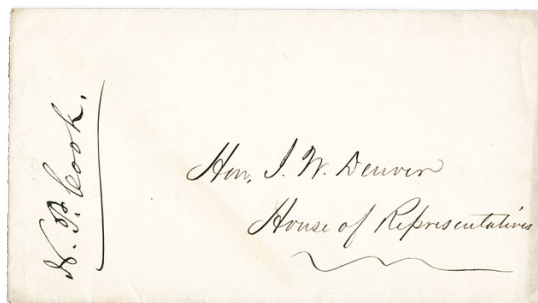 N. P. Cook.
Hon. J. W. Denver
House of Representatives